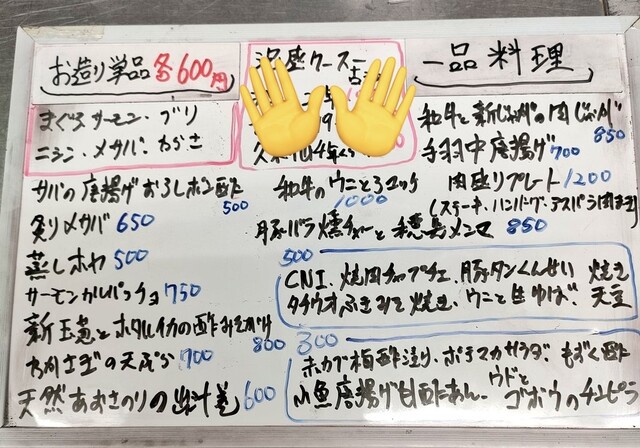 お造り単品 各600円
まぐろ サーモン・ブリ
ニシン・メサバ・わかさ
サバの唐揚げおろしポン酢 500
炙りメサバ 650
蒸しホヤ 500
サーモンカルパッチョ 750
新玉葱とホタルイカの酢みそがけ 800
の天ぷら 700
天然あおさのりの出汁巻 600
一品料理
和牛と新じゃがの肉じゃが 850
手羽中唐揚げ 700
和牛のウニとろユッケ 1000
肉盛りプレート 1200
(ステーキ、ハンバーグ、アスパラ肉まき)
豚バラ燻チャーと穂先メンマ 850
500
CNI、焼肉チャプチェ、豚タンくんせい
タチウオふきみそ焼き、ウニと生ゆば、天豆
焼き
300
赤カブ梅酢漬り、ポテマカサラダ、もずく酢
小魚唐揚げ甘酢あん、ウドと
ゴボウのチンピラ